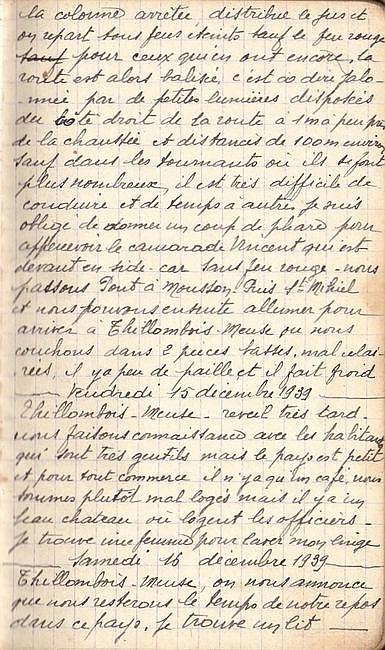 la colonne arretée, distribue le jus et
on repart tous feux eteints sauf le feu rouge
sauf pour ceux qui en ont encore, la
route est alors balisée, c'est a dire jalo
-nnée par de petites lumières disposées
du côté droit de la route à 1m à peu près
de la chaussée et distancés de 100m environ
sauf dans les tournants où ils se font
plus nombreux, il est très difficile de
conduire et de temps à autres je suis
obligé de donner un coup de phare pour
appercevoir le camarade Vincent qui est
devant en side-car sans feu rouge - nous
passons Pont à Mousson Puis St Mihiel
et nous pouvons ensuite allumer pour
arriver à Thillombois - Meuse où nous
couchons dans 2 pieces basses, mal eclai-
rées, il y a peu de paille et il fait froid
Vendredi 15 décembre 1939
Thillombois - Meuse - reveil très tard -
nous faisons connaissance avec les habitants
qui sont très gentils mais le pays est petit
et pour tout commerce il n'y a qu'un café, nous
sommes plutôt mal logés mais il y a un
beau chateau où logent les officiers -
Je trouve une femme pour laver mon linge
Samedi 16 décembre 1939
Thillombois - Meuse, on nous annonce
que nous resterons le temps de notre repos
dans ce pays. Je trouve un lit